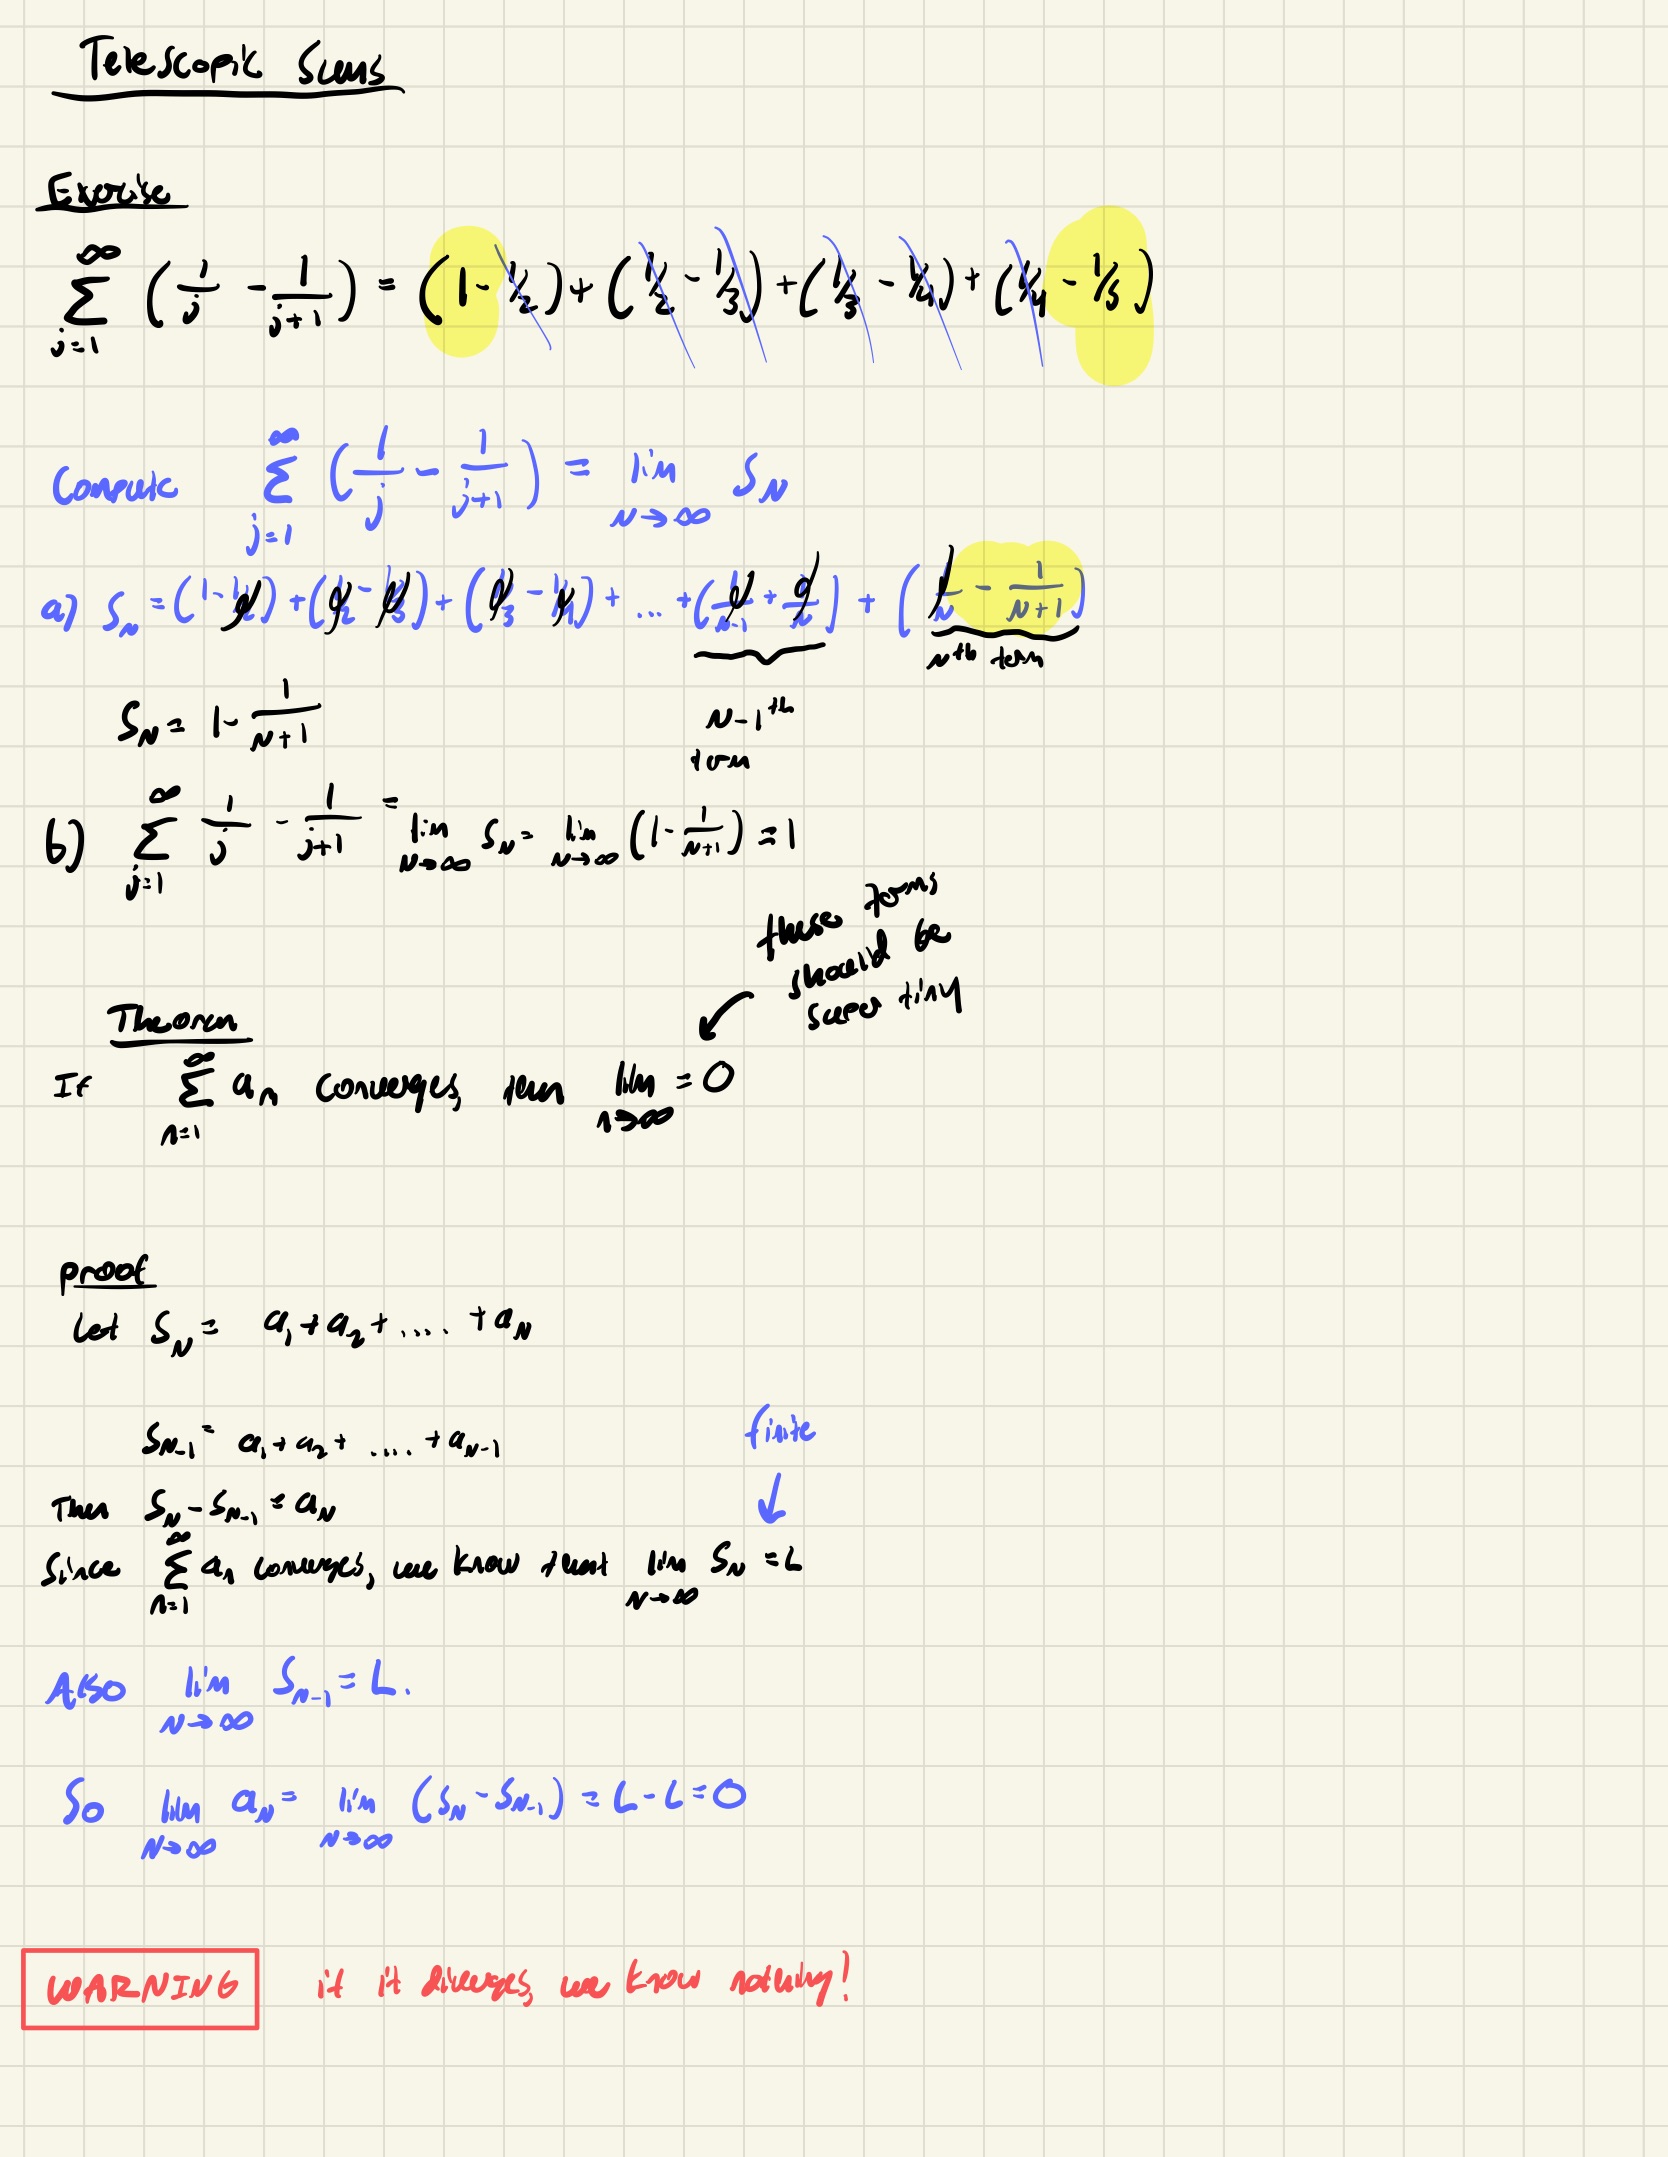 Telescopic Sums
Exercise
∑_{j=1}^{∞} (1/j - 1/(j+1)) = (1 - 1/2) + (1/2 - 1/3) + (1/3 - 1/4) + (1/4 - 1/5)
Compute ∑_{j=1}^{∞} (1/j - 1/(j+1)) = lim_{N→∞} S_N
a) S_N = (1 - 1/2) + (1/2 - 1/3) + (1/3 - 1/4) + ... + (1/(N-1) + 1/N) + (1/N - 1/(N+1))
N^th term
S_N = 1 - 1/(N+1)
N-1^th
term
b) ∑_{j=1}^{∞} 1/j - 1/(j+1) = lim_{N→∞} S_N = lim_{N→∞} (1 - 1/(N+1)) = 1
these terms
should be
super tiny
Theorem
If ∑_{n=1}^{∞} a_n converges, then lim_{n→∞} = 0
proof
Let S_N = a_1 + a_2 + .... + a_N
S_{N-1} = a_1 + a_2 + .... + a_{N-1}
finite
Then S_N - S_{N-1} = a_N
Since ∑_{n=1}^{∞} a_n converges, we know that lim_{N→∞} S_N = L
Also lim_{N→∞} S_{N-1} = L.
So lim_{N→∞} a_N = lim_{N→∞} (S_N - S_{N-1}) = L - L = 0
WARNING if it diverges, we know nothing!